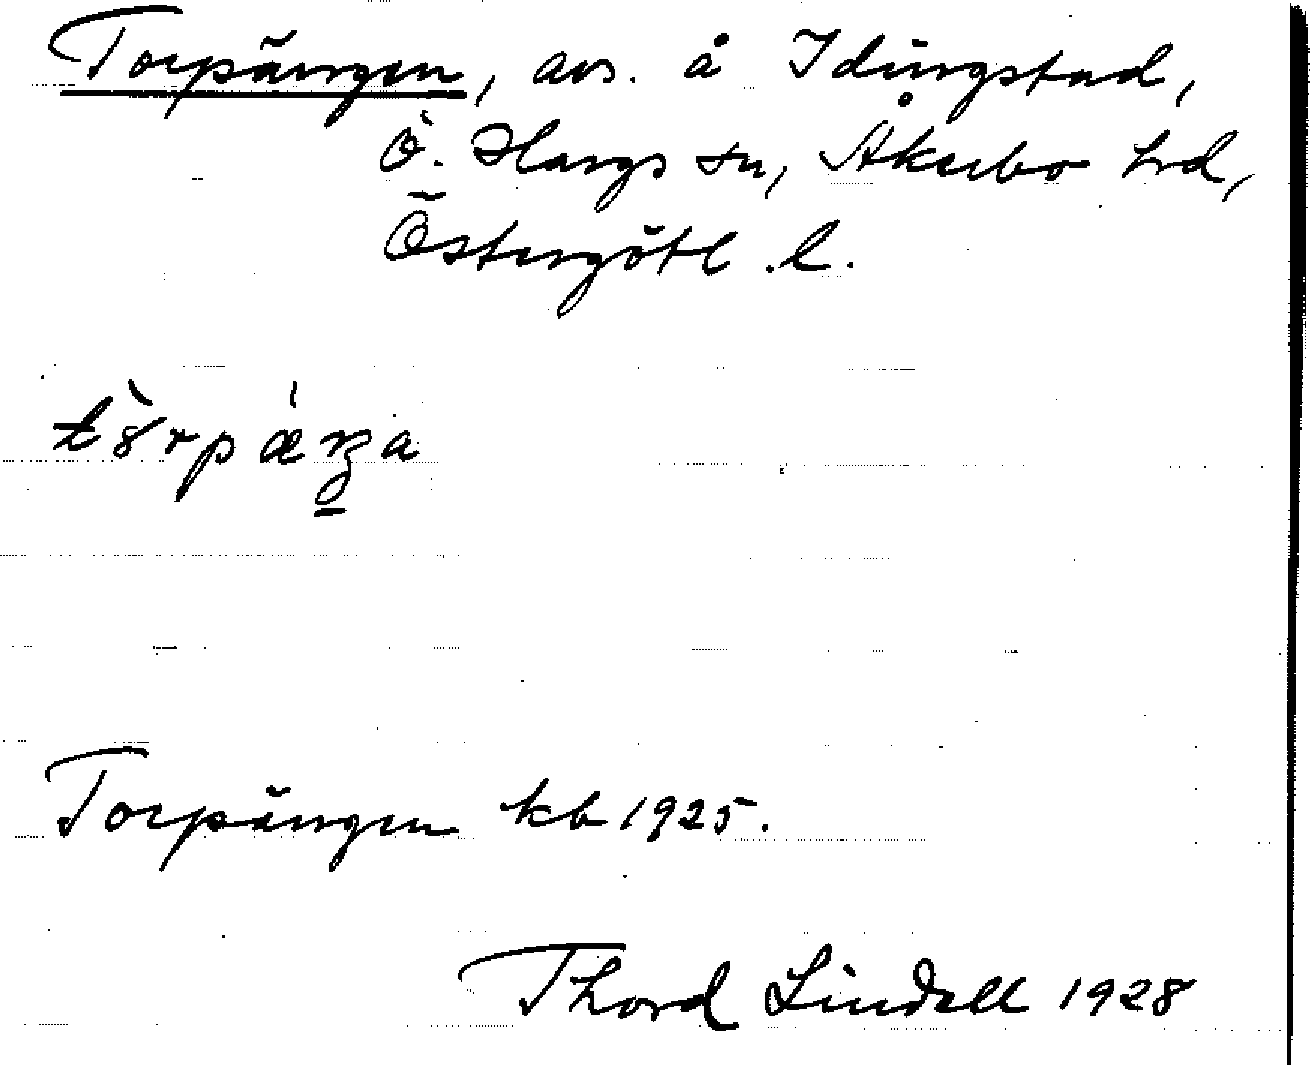 Torpängen, avs. å Idingstad,
Ö. Hargs sn, Åkerbo hd,
Östergötl. l.
Torpängen kb 1925.
Thord Lindell 1928